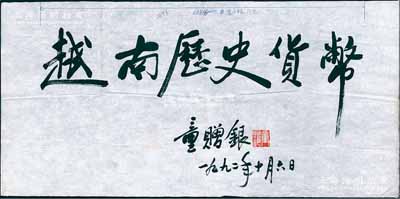 越南歷史貨幣
童贈銀
一九九二年十月六日